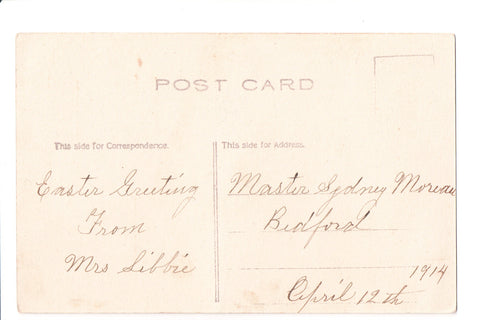 POST CARD
This side for Correspondence.
This side for Address.
Easter Greeting
From
Mrs Libbie
Master Sydney Moreau
Bedford
1914
April 12th